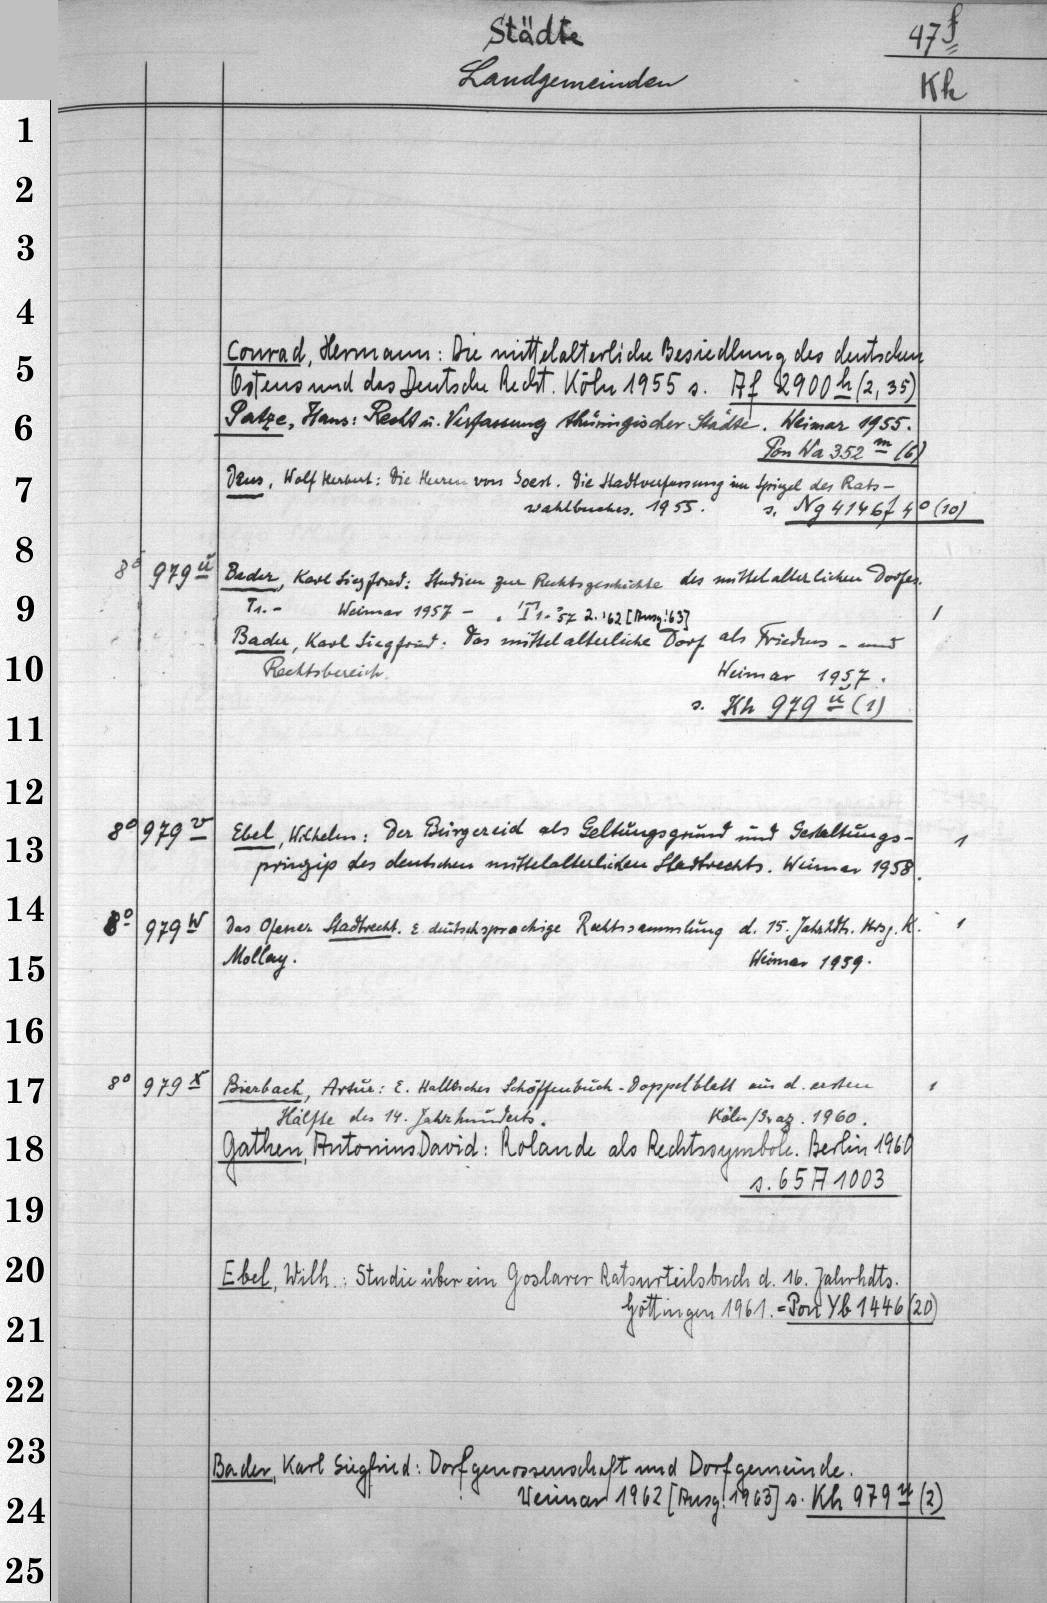 Städte
47f
Landgemeinden
Kh
1
2
3
4
Conrad, Hermann: Die mittelalterliche Besiedlung des deutschen
5
Ostens und das Deutsche Recht. Köln 1955 s. Af 2900 h (2, 35)
6
Patze, Hans: Recht u. Verfassung thüringischer Städte. Weimar 1955.
Pon Wa 352 m (6)
7
Deus, Wolf Herbert: Die Herren von Soest. Die Stadtverfassung im Spiegel des Rats-
wahlbuches. 1955. s. Ng 4146f 4° (10)
8
8° 979 ü Bader, Karl Siegfried: Studien zur Rechtsgeschichte des mittelalterlichen Dorfes.
9
T1.- Weimar 1957 - . T1.- '57 2. '62 [Ausg. '63] 1
Bader, Karl Siegfried: Das mittelalterliche Dorf als Friedens- und
10
Rechtsbereich. Weimar 1957.
s. Kh 979 ü (1)
11
12
8° 979 v Ebel, Wilhelm: Der Bürgereid als Geltungsgrund und Gestaltungs- 1
13
prinzip des deutschen mittelalterlichen Stadtrechts. Weimar 1958.
14
8° 979 w Das Ofener Stadtrecht. E. deutschsprachige Rechtssammlung d. 15. Jahrhdts. Hrsg. K. 1
15
Mollay. Weimar 1959.
16
17
8° 979 x Bierbach, Artur: E. Hallisches Schöffenbuch-Doppelblatt aus d. ersten 1
Hälfte des 14. Jahrhunderts. Köln/Graz. 1960.
18
Gathen, Antonius David: Rolande als Rechtssymbole. Berlin 1960
s. 65 A 1003
19
20
Ebel, Wilh.: Studie über ein Goslarer Ratsurteilsbuch d. 16. Jahrhdts.
Göttingen 1961. = Pon Yb 1446 (20)
21
22
23
Bader, Karl Siegfried: Dorfgenossenschaft und Dorfgemeinde.
24
Weimar 1962 [Ausg. 1963] s. Kh 979 u (2)
25